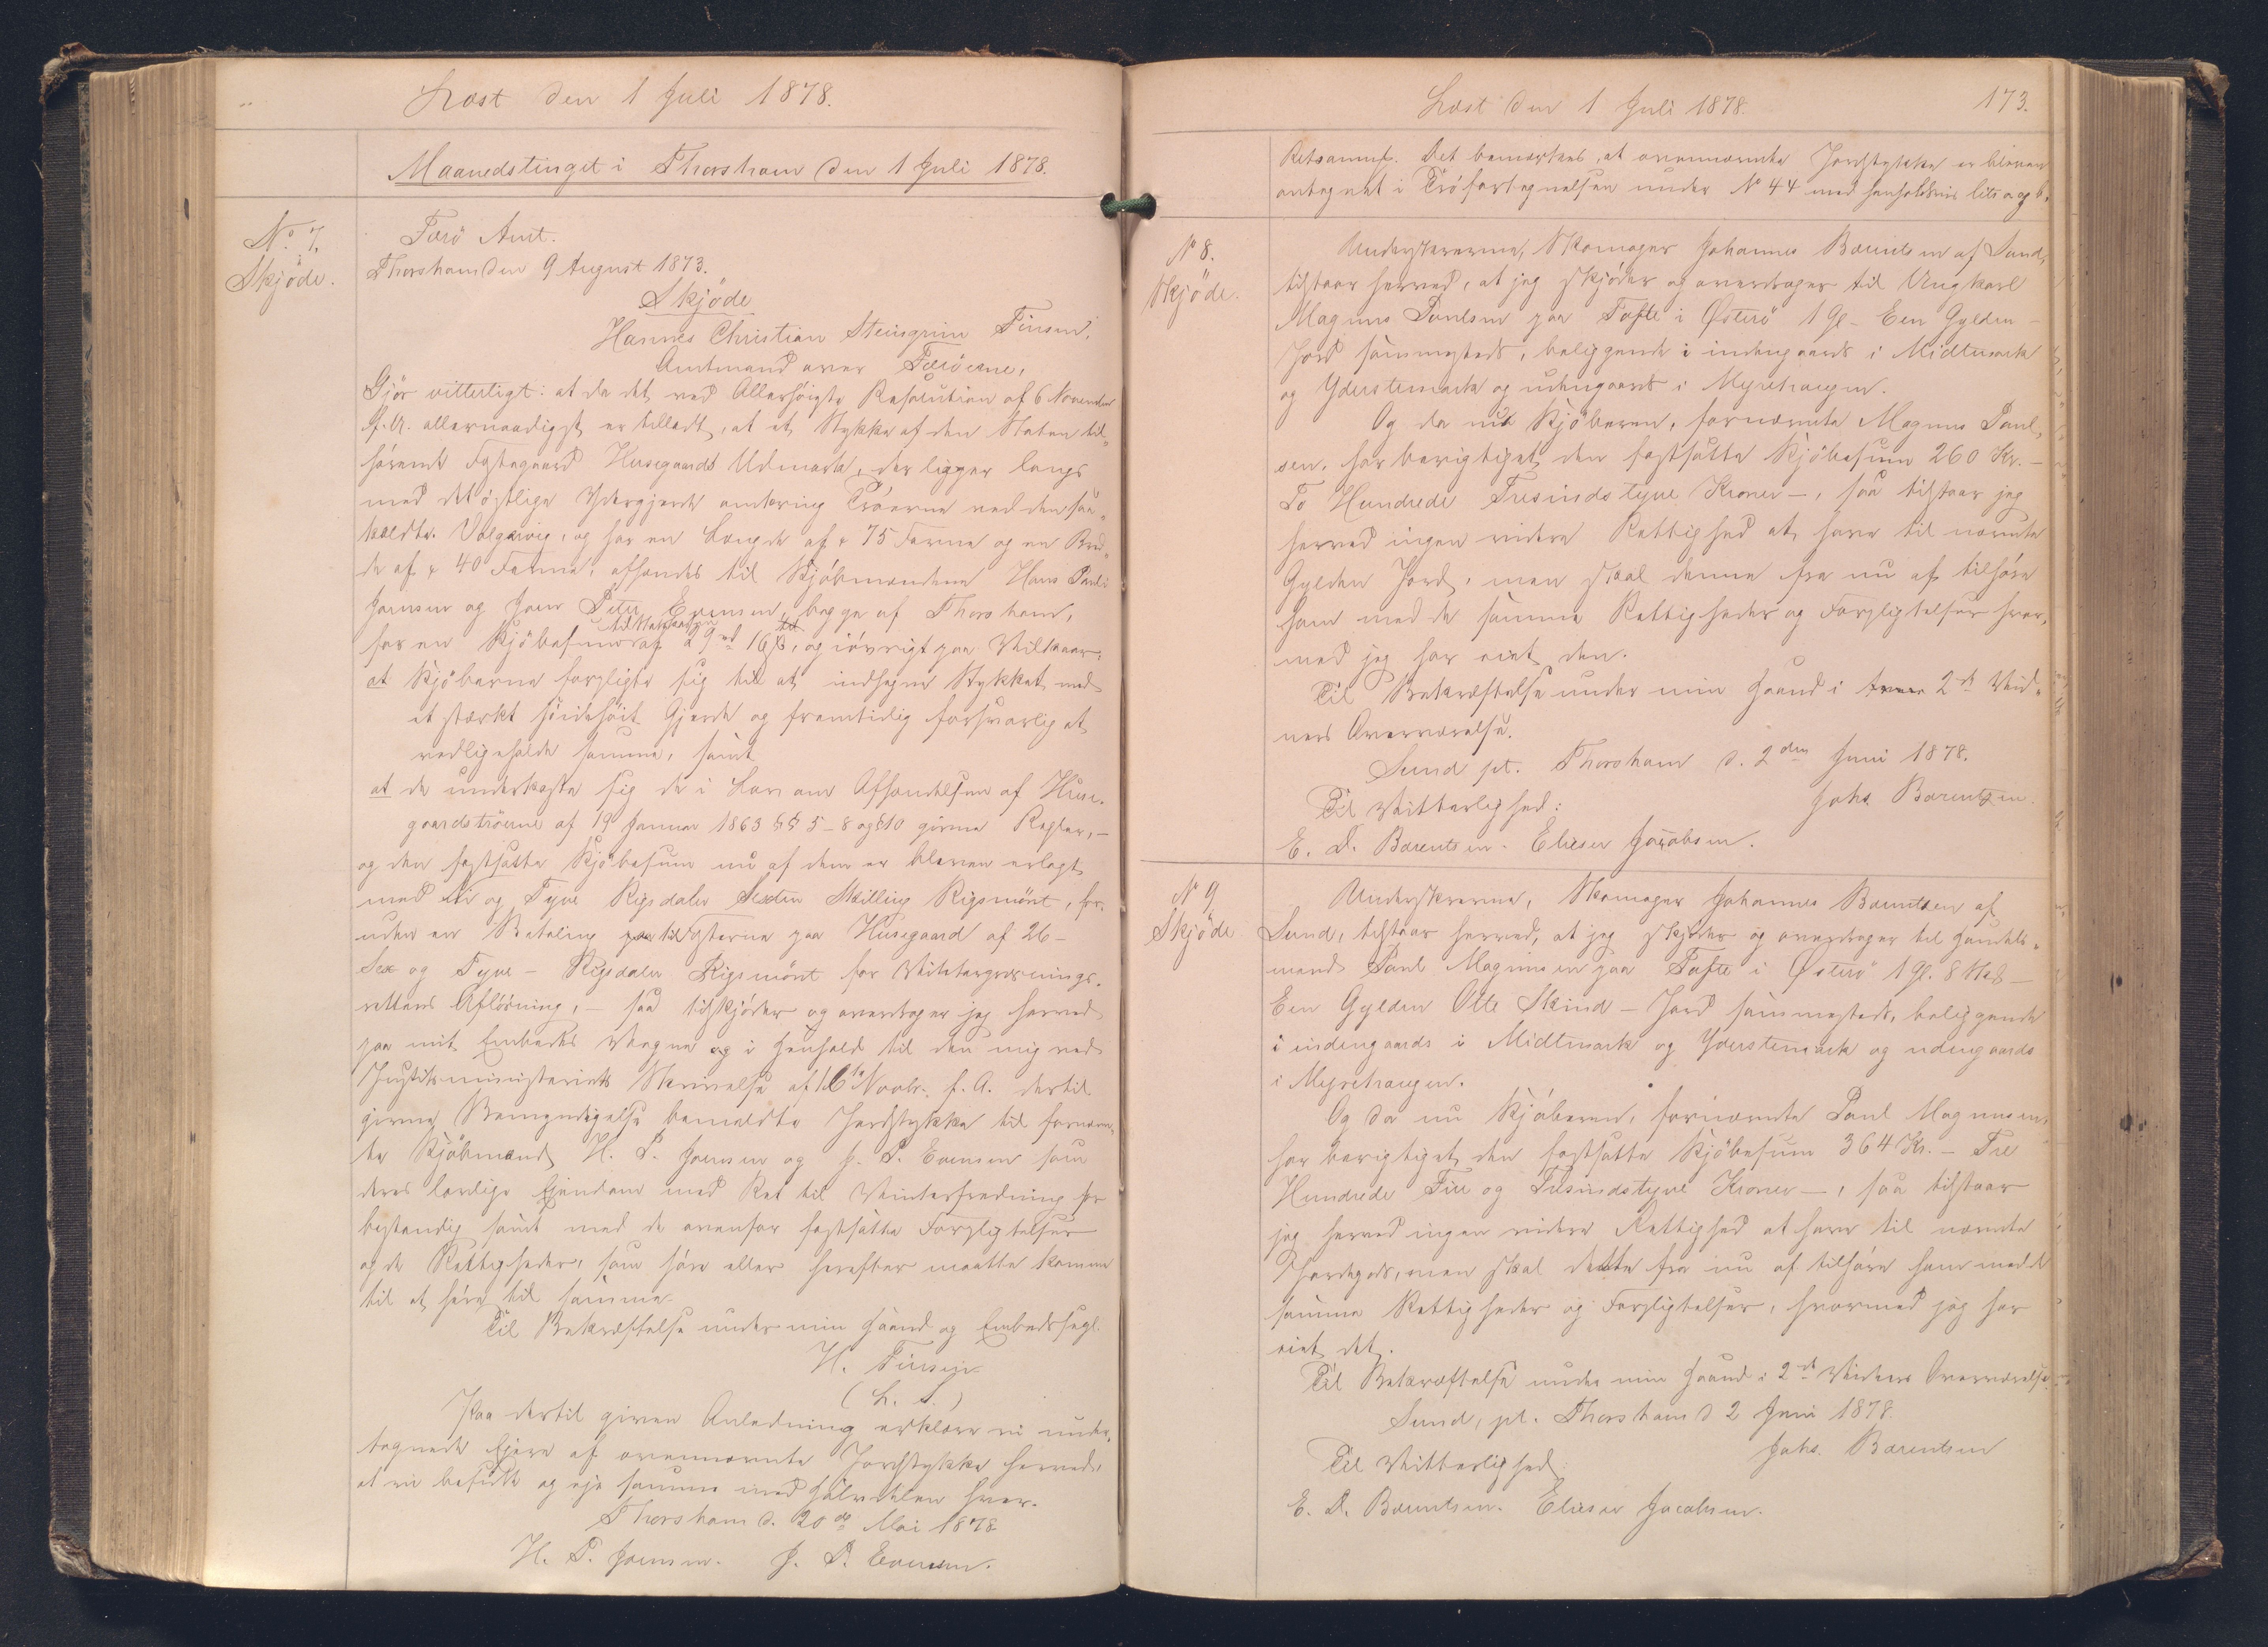 Læst den 1 Juli 1878.
Maanedstinget i Thorshavn den 1 Juli 1878.
No. 7.
Skjöde.
Færö Amt.
Thorshavn den 9 August 1873.
Skjöde
Hannes Christian Steingrim Finsen,
Amtmand over Færöerne,
Gjör vitterligt: at da det ved Allerhöieste Resolution af 6 November
f. A. allernaadigst er tilladt, at et Stykke af den Staten til-
hörende Fæstegaard Husegaards Udmark, der ligger langs
med det östlige Ydergjerde omkring Tröerne ved den saa-
kaldte Valgervig, og har en Længde af c 75 Favne og en Bred-
de af c 40 Favne, afhændes til Kjöbmændene Hans Pauli
Joensen og Joen Peter Evensen, begge af Thorshavn,
for en Kjöbesum af 29 rd 16 ß, og iövrigt paa Vilkaar,
at Kjöberne forpligte sig til at indhegne Stykket med
et stærkt höidehöit Gjerde og fremtidig forsvarlig at
vedligeholde samme, samt
at de underkaste sig de i Lov om Afhændelsen af Huse-
gaardströerne af 19 Januar 1863 §§ 5-8 og §10 givne Regler, -
og den fastsatte Kjöbesum nu af dem er bleven erlagt
med Ni og Tyve Rigsdaler Sexten Skilling Rigsmönt, for-
uden en Betaling til Fæsterne paa Husegaard af 26 -
Sex og Tyve - Rigsdaler Rigsmönt for Vintergræsnings-
rettens Aflösning, - saa tilskjöder og overdrager jeg herved
paa mit Embeds Vegne og i Henhold til den mig ved
Justitsministeriets Skrivelse af 16de Novbr. f. A. dertil
givne Bemyndigelse bemeldte Jordstykke til fornævn-
te Kjöbmænd H. P. Joensen og J. P. Evensen som
deres lovlige Ejendom med Ret til Vinterfredning for
bestandig samt med de ovenfor fastsatte Forpligtelser
og de Rettigheder, som höre eller herefter maatte komme
til at höre til samme.
Til Bekræftelse under min Haand og Embedssegl.
H. Finsen.
(L. S.)
Paa dertil given Anledning erklære vi under-
tegnede Ejere af ovennævnte Jordstykke herved,
at vi besidde og eje samme med Halvdelen hver.
Thorshavn d. 20de Mai 1878
H. P. Joensen. J. P. Evensen.
Læst den 1 Juli 1878.
173.
Retsanmk. Det bemærkes, at ovennævnte Jordstykke er bleven
antegnet i Tröfortegnelsen under No 44 med henholdsvis litr a og b.
No 8.
Skjöde.
Underskrevne, Skomager Johannes Bærentsen af Sund,
tilstaar herved, at jeg skjöder og overdrager til Ungkarl
Magnus Poulsen paa Tofte i Österö 1 Gl - Een Gylden -
Jord sammesteds, beliggende i indengaards i Midtmark
og Yderstemark og udengaards i Myrehaugen.
Og da nu Kjöberen, fornævnte Magnus Poul-
sen, har berigtiget den fastsatte Kjöbesum 260 Kr. -
To Hundrede Tresindstyve Kroner -, saa tilstaar jeg
herved ingen videre Rettighed at have til nævnte
Gylden Jord, men skal denne fra nu af tilhöre
ham med de samme Rettigheder og Forpligtelser hvor-
med jeg har eiet den.
Til Bekræftelse under min Haand i 2de Vid-
ners Overværelse.
Sund pt. Thorshavn d. 2den Juni 1878.
Johs Bærentsen.
Til Vitterlighed:
E. D. Bærentsen. Elieser Jacobsen.
No 9
Skjöde
Underskrevne, Skomager Johannes Bærentsen af
Sund, tilstaar herved, at jeg skjöder og overdrager til Handels-
mand Poul Magnusen paa Tofte i Österö 1 Gl. 8 Sk -
Een Gylden Otte Skind - Jord sammesteds, beliggende
i indengaards i Midtmark og Yderstemark og udengaards
i Myrehaugen.
Og da nu Kjöberen, fornævnte Poul Magnusen,
har berigtiget den fastsatte Kjöbesum 364 Kr. - Tre
Hundrede Fire og Tresindstyve Kroner -, saa tilstaar
jeg herved ingen videre Rettighed at have til nævnte
Jordegods, men skal dette fra nu af tilhöre ham med de
samme Rettigheder og Forpligtelser, hvormed jeg har
eiet det.
Til Bekræftelse under min Haand i 2de Vidners Overværelse
Sund, pt. Thorshavn d 2 Juni 1878.
Johs. Bærentsen
Til Vitterlighed:
E. D. Bærentsen. Elieser Jacobsen.